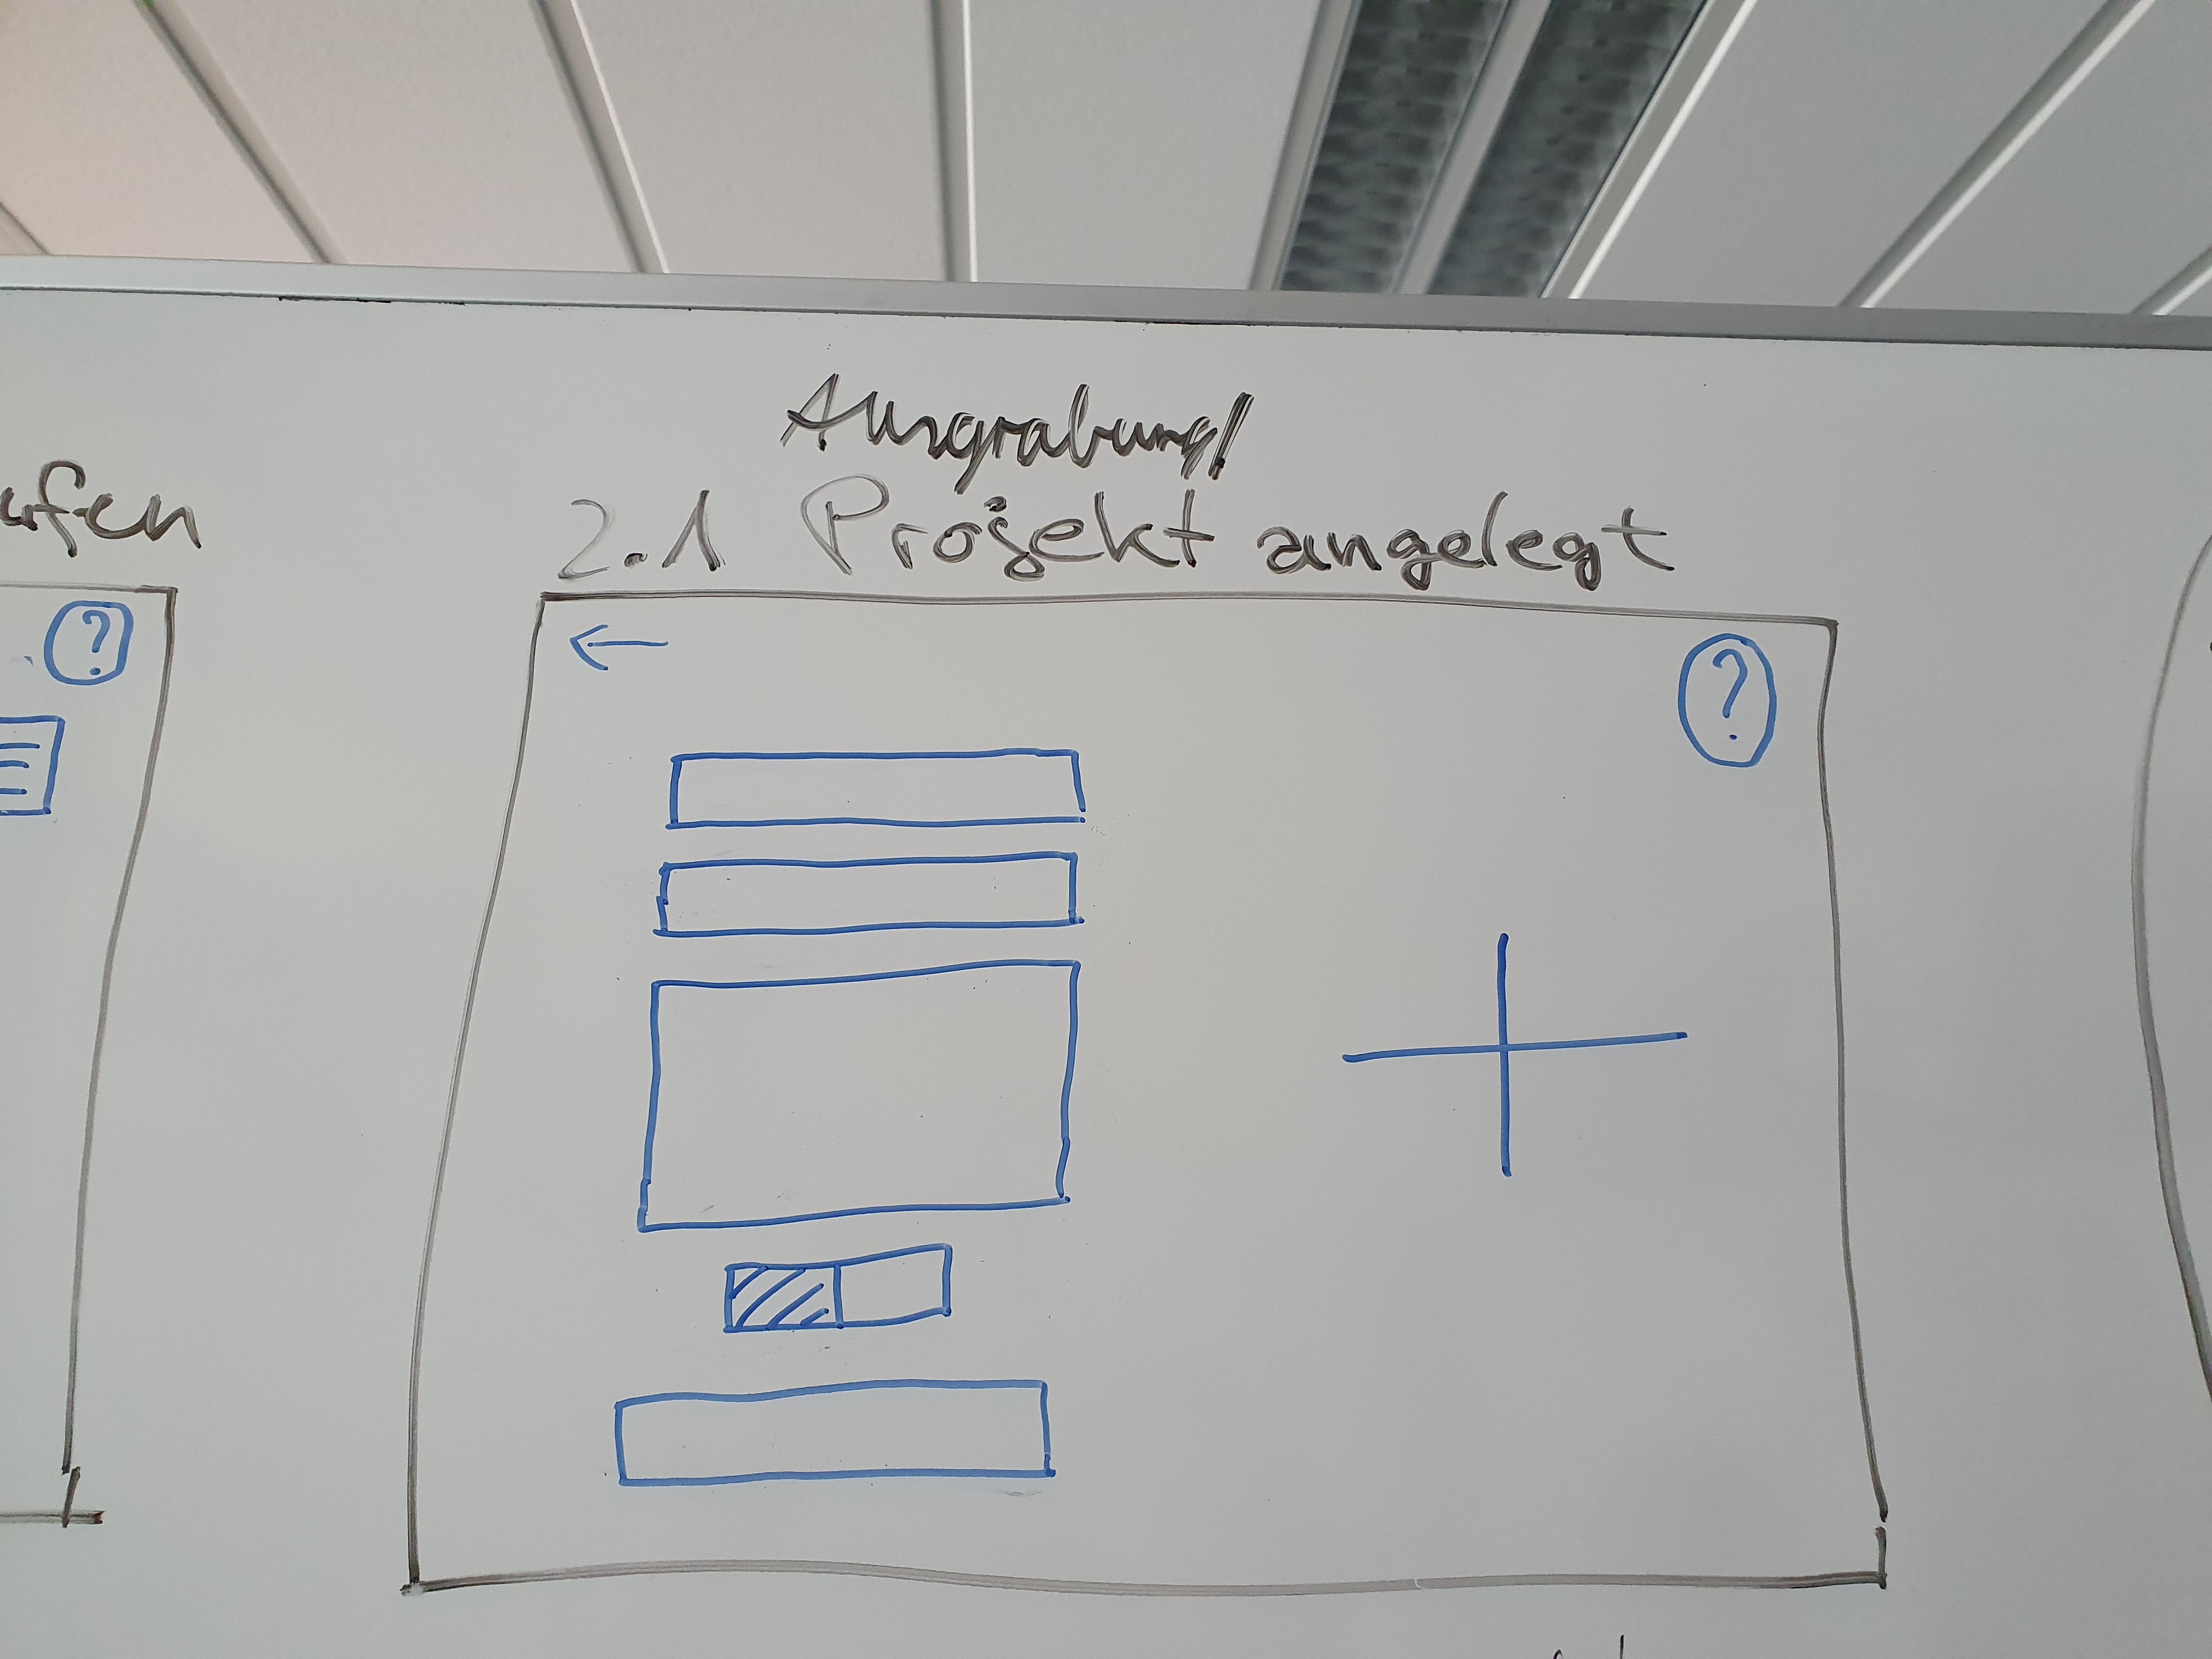 Ausgrabung/
2.1 Projekt angelegt
?
?